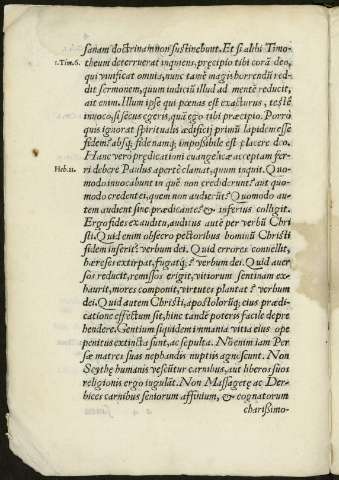 sanam doctrinam non sustinebunt. Et si alibi Timo-
1. Tim. 6. theum deterruerat inquiens, præcipio tibi corã deo,
qui viuificat omnia, nunc tamẽ magis horrendũ red-
dit sermonem, quum iudicij illud ad mentẽ reducit,
ait enim. Illum ipse qui pœnas est exacturus, testẽ
inuoco, si secus egeris, quã ego tibi præcipio. Porrò
quis ignorat spiritualis ædificij primũ lapidem esse
fidem? absq; fide namq; impoßibile est placere deo.
Hanc verò prędicationi euangelicæ acceptam fer-
Heb. 11. ri debere Paulus apertè clamat, quum inquit. Quo-
modo inuocabunt in quẽ non crediderunt? aut quo-
modo credent ei, quem non audierũt? Quomodo au-
tem audient sine prædicante? & inferius colligit.
Ergo fides ex auditu, auditus autẽ per verbũ Chri
sti. Quid enim obsecro pectoribus hominũ Christi
fidem inserit? verbum dei. Quid errores conuellit,
hæreses extirpat, fugatq;? verbum dei. Quid auer-
sos reducit, remissos erigit, vitiorum sentinam ex-
haurit, mores componit, virtutes plantat? verbum
dei. Quid autem Christi, apostolorũq; eius prædi-
catione effectum sit, hinc tandẽ poteris facile depre
hendere. Gentium siquidem immania vitia eius ope
penitus extincta sunt, ac sepulta. Nõ enim iam Per
sæ matres suas nephandis nuptijs agnoscunt. Non
Scythę humanis vescũtur carnibus, aut liberos suos
religionis ergo iugulãt. Non Massagetę ac Der-
bices carnibus seniorum affinium, & cognatorum
charißimo-